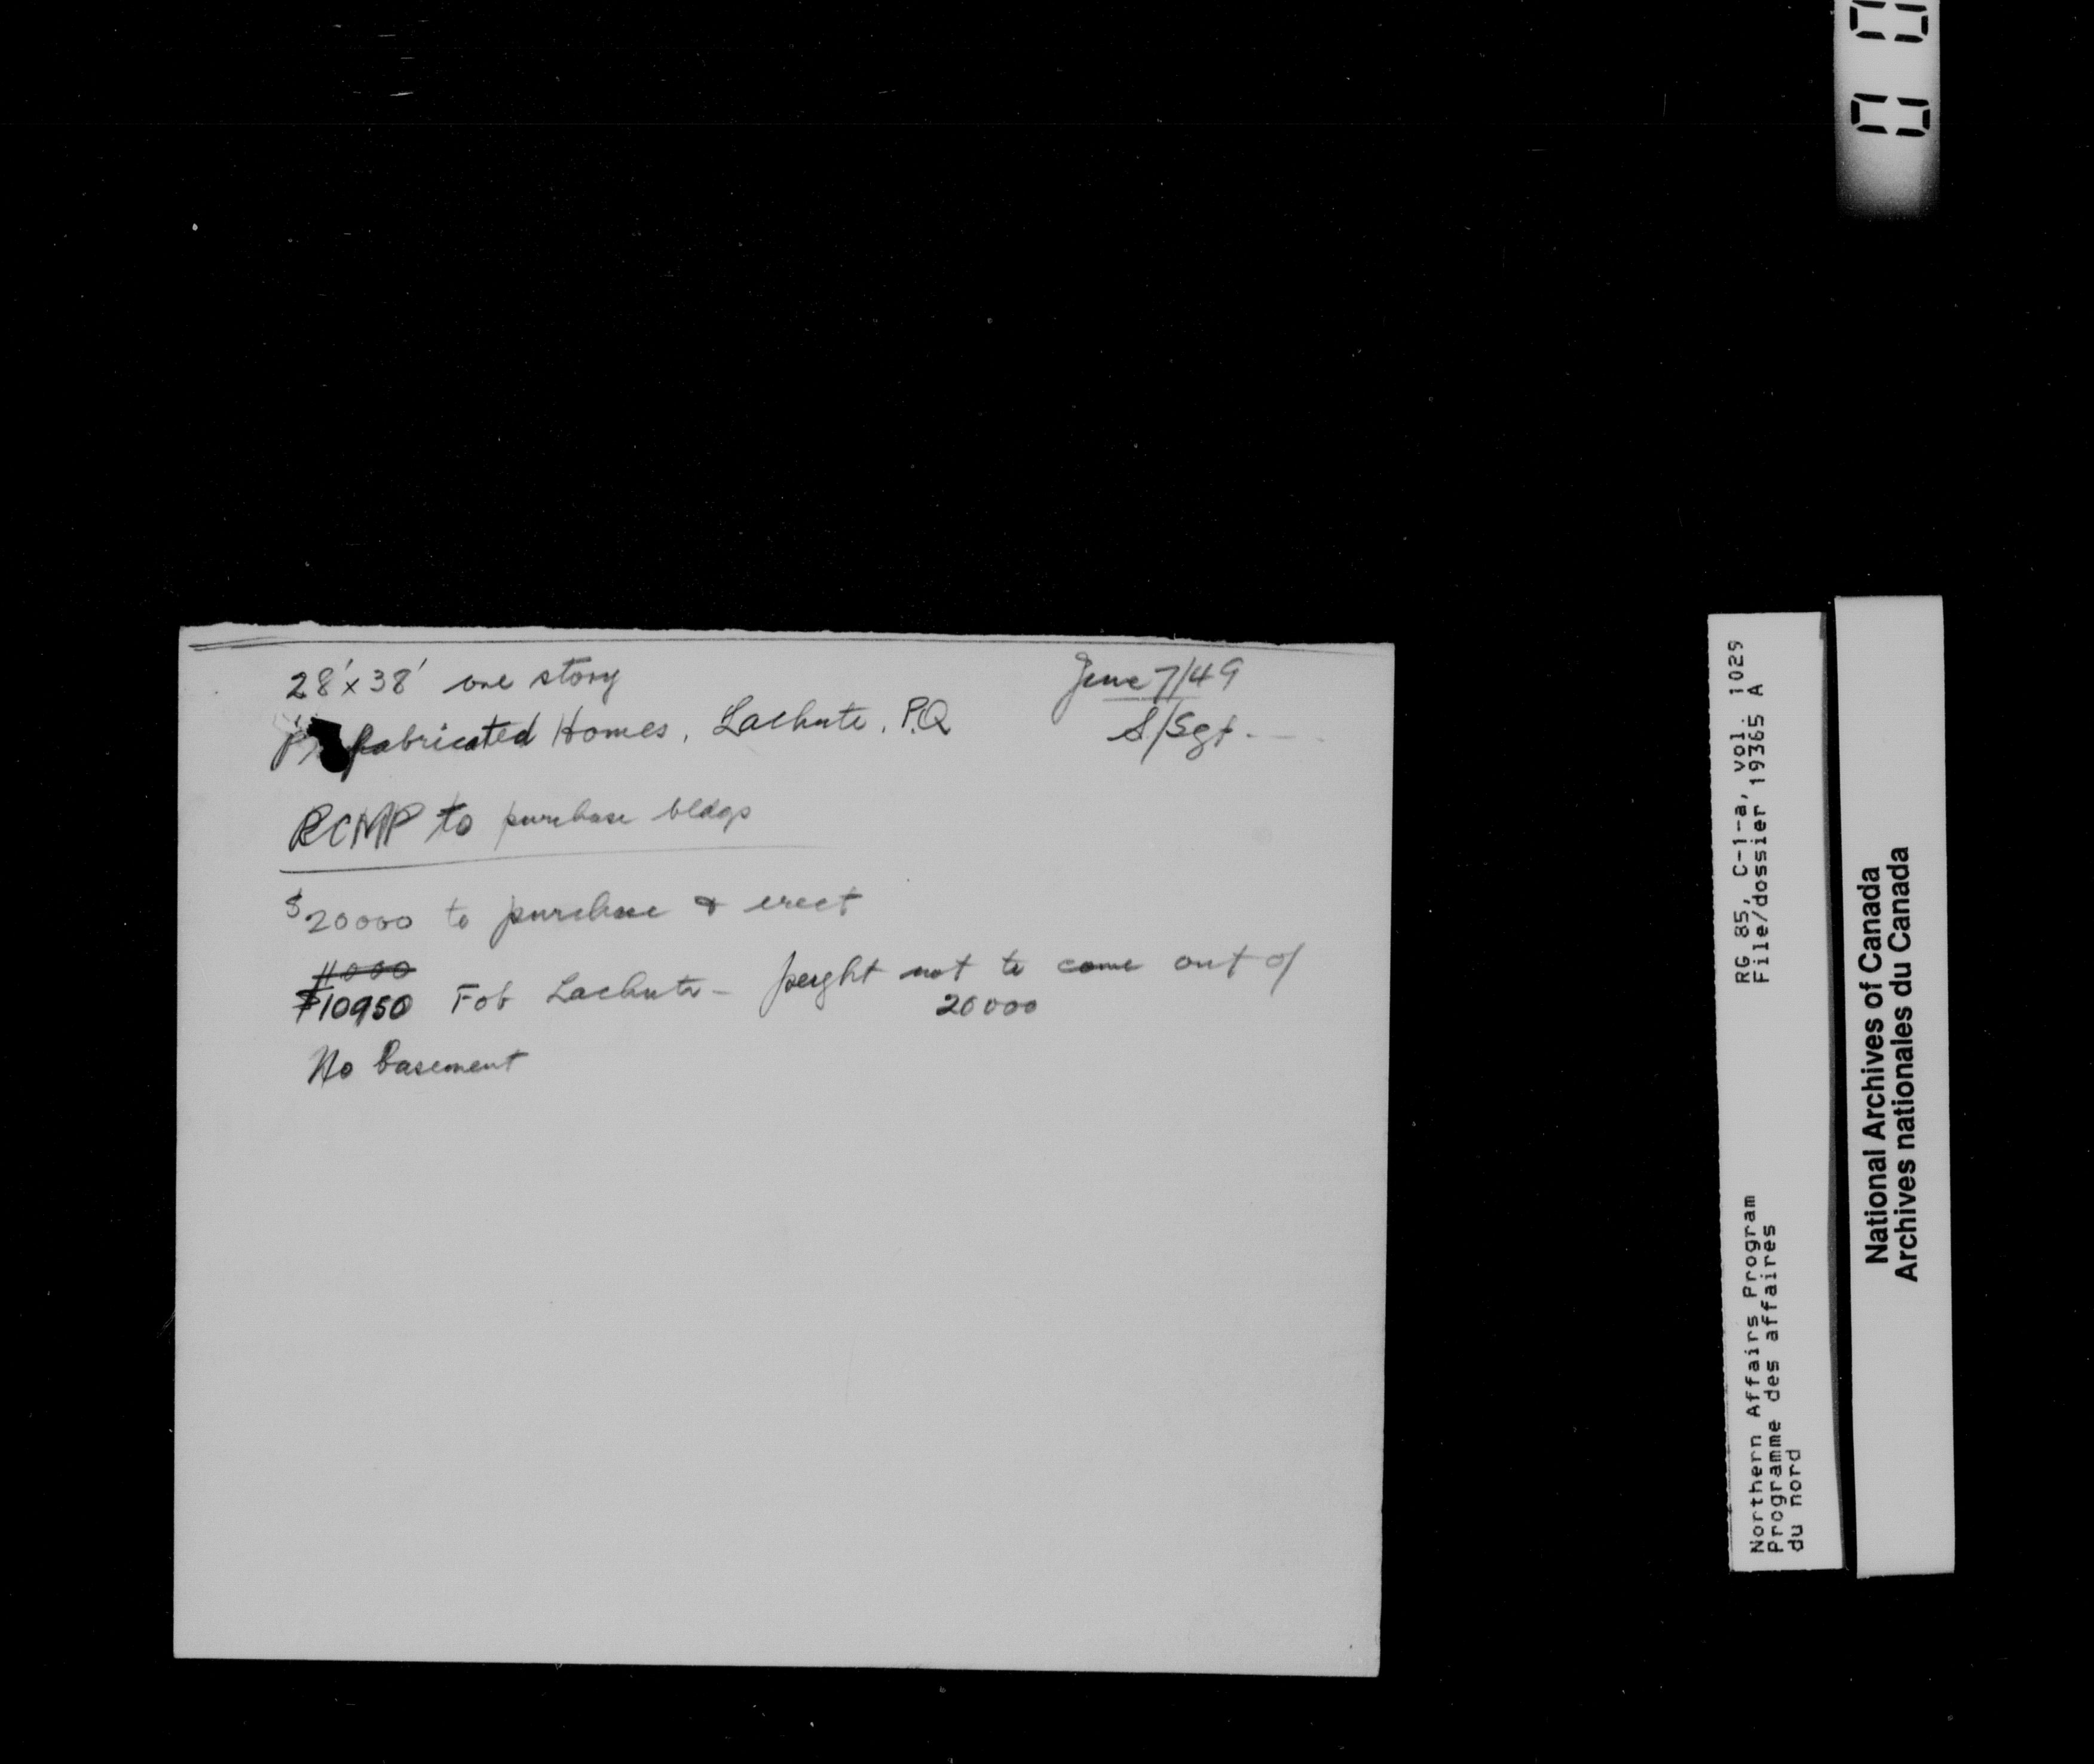 28' x 38' one story
June 7/49
fabricated Homes, Lachute, P.Q
S/Sgt.
RCMP to purchase bldgs
$20000 to purchase & erect
11000
$10950 Fob Lachute - freight not to come out of
20000
No basement
RG 85, C-1-a, vol. 1029
File/dossier 19365 A
Northern Affairs Program
Programme des affaires
du nord
National Archives of Canada
Archives nationales du Canada